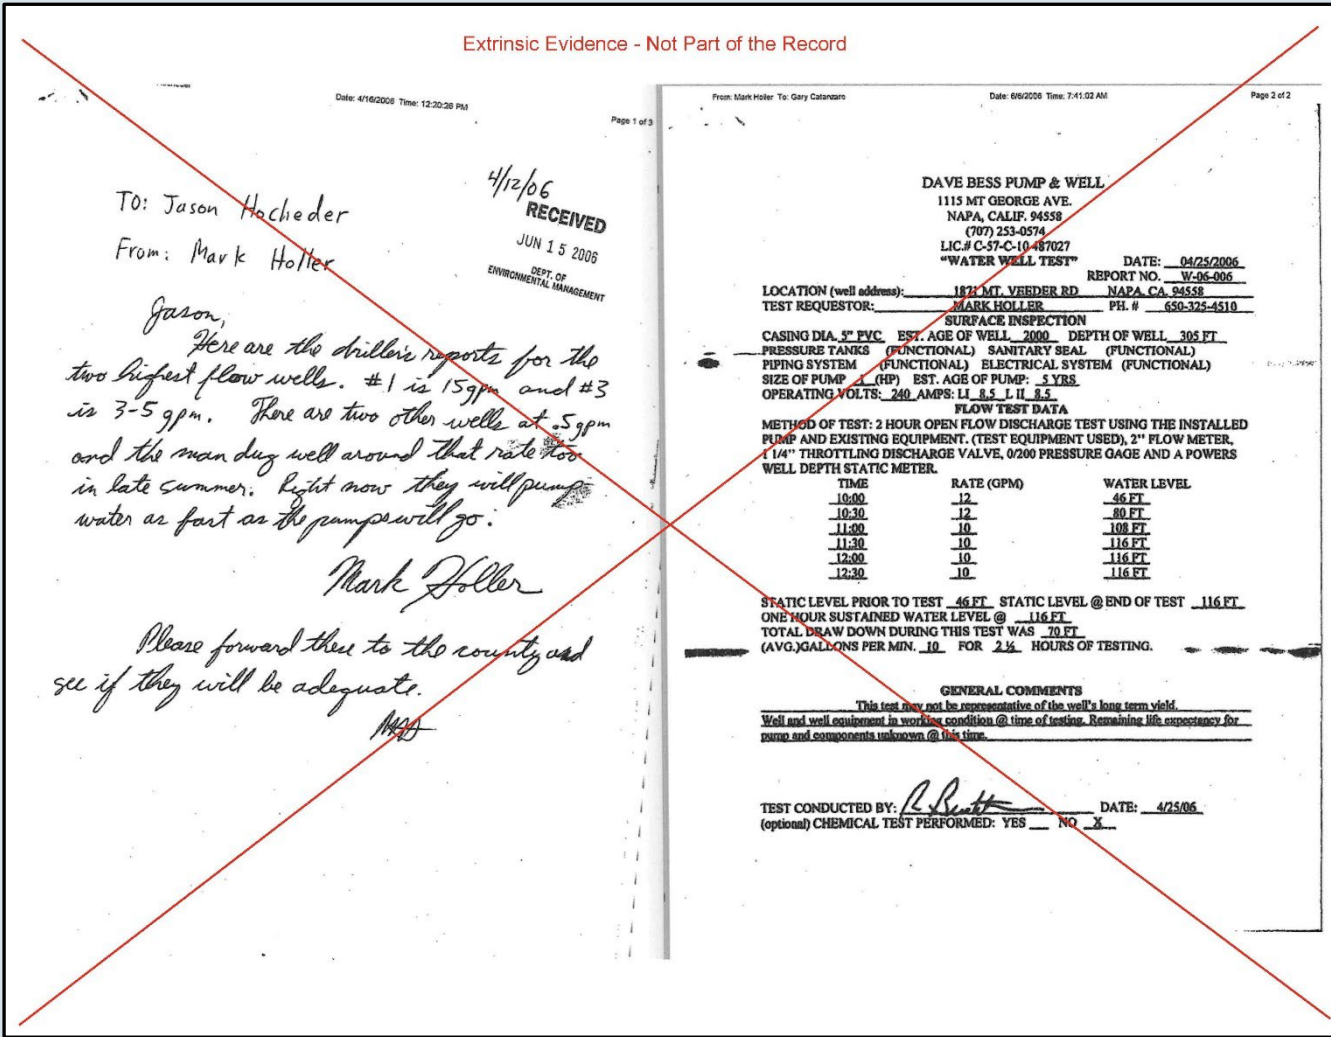 Extrinsic Evidence - Not Part of the Record
Date: 4/16/2006 Time: 12:20:26 PM
Page 1 of 3
4/12/06
RECEIVED
JUN 15 2006
DEPT. OF
ENVIRONMENTAL MANAGEMENT
TO: Jason Hocheder
From: Mark Holler
Jason,
Here are the driller's reports for the
two highest flow wells. #1 is 15gpm and #3
is 3-5 gpm. There are two other wells at .5gpm
and the man dug well around that rate too
in late summer. Right now they will pump
water as fast as the pumps will go.
Mark Holler
Please forward these to the county and
see if they will be adequate.
From: Mark Holler To: Gary Catanzaro
Date: 6/6/2006 Time: 7:41:02 AM
Page 2 of 2
DAVE BESS PUMP & WELL
1115 MT GEORGE AVE.
NAPA, CALIF. 94558
(707) 253-0574
LIC.# C-57-C-10-487027
"WATER WELL TEST" DATE: 04/25/2006
REPORT NO. W-06-006
LOCATION (well address): 1871 MT. VEEDER RD NAPA, CA. 94558
TEST REQUESTOR: MARK HOLLER PH. # 650-325-4510
SURFACE INSPECTION
CASING DIA. 5" PVC EST. AGE OF WELL 2000 DEPTH OF WELL 305 FT
PRESSURE TANKS (FUNCTIONAL) SANITARY SEAL (FUNCTIONAL)
PIPING SYSTEM (FUNCTIONAL) ELECTRICAL SYSTEM (FUNCTIONAL)
SIZE OF PUMP (HP) EST. AGE OF PUMP: 5 YRS
OPERATING VOLTS: 240 AMPS: LI 8.5 L II 8.5
FLOW TEST DATA
METHOD OF TEST: 2 HOUR OPEN FLOW DISCHARGE TEST USING THE INSTALLED
PUMP AND EXISTING EQUIPMENT. (TEST EQUIPMENT USED), 2" FLOW METER,
1 1/4" THROTTLING DISCHARGE VALVE, 0/200 PRESSURE GAGE AND A POWERS
WELL DEPTH STATIC METER.
TIME RATE (GPM) WATER LEVEL
10:00 12 46 FT
10:30 12 80 FT
11:00 10 108 FT
11:30 10 116 FT
12:00 10 116 FT
12:30 10 116 FT
STATIC LEVEL PRIOR TO TEST 46 FT STATIC LEVEL @ END OF TEST 116 FT
ONE HOUR SUSTAINED WATER LEVEL @ 116 FT
TOTAL DRAW DOWN DURING THIS TEST WAS 70 FT
(AVG.)GALLONS PER MIN. 10 FOR 2 ½ HOURS OF TESTING.
GENERAL COMMENTS
This test may not be representative of the well's long term yield.
Well and well equipment in working condition @ time of testing. Remaining life expectancy for
pump and components unknown @ this time.
TEST CONDUCTED BY: DATE: 4/25/06
(optional) CHEMICAL TEST PERFORMED: YES NO X